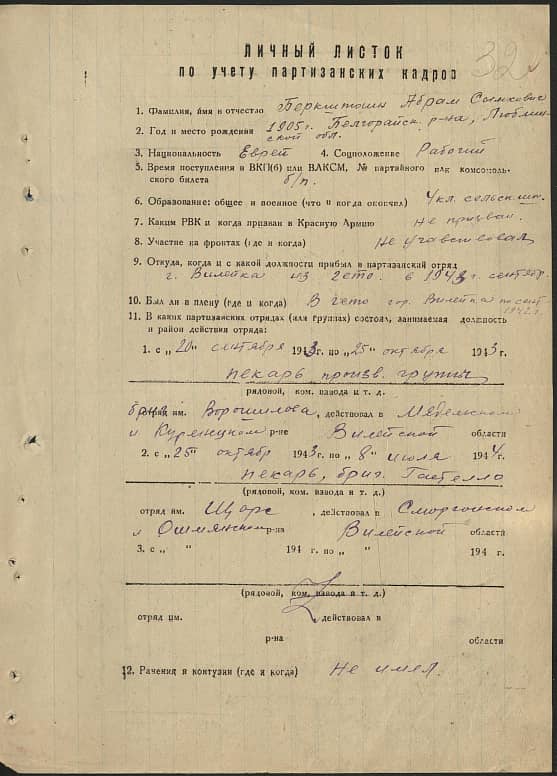 32
ЛИЧНЫЙ ЛИСТОК
по учету партизанских кадров
1. Фамилия, имя и отчество Беркштейн Абрам
2. Год и место рождения 1905 г. Белгорайск. р-на, Люблин-
ской обл.
3. Национальность Еврей 4. Соцположение Рабочий
5. Время поступления в ВКП(б) или ВЛКСМ, № партийного или комсомоль-
ского билета б/п.
6. Образование: общее и военное (что и когда окончил) 4 кл. сельск. шк.
7. Каким РВК и когда призван в Красную Армию Не призван.
8. Участие на фронтах (где и когда) Не участвовал
9. Откуда, когда и с какой должности прибыл в партизанский отряд
г. Вилейка из гето. в 1943 г. сентябр.
10. Был ли в плену (где и когда) В гето гор. Вилейка по сент.
11. В каких партизанских отрядах (или группах) состоял, занимаемая должность
и район действия отряда:
1. с „20" сентября 1943 г. по „25" октября 1943 г.
пекарь произв. группы
(рядовой, ком. взвода и т. д.)
отряд им. Ворошилова, действовал в Мядельском
и Куренецком р-не Вилейской области
2. с „25" октябр 1943 г. по „8" июля 1944 г.
пекарь, бриг. Гастелло
(рядовой, ком. взвода и т. д.)
отряд им. Щорс, действовал в Сморгонском
и Ошмянском р-на Вилейской области
3. с „ " 194 г. по „ " 194 г.
(рядовой, ком. взвода и т. д.)
отряд им. действовал в
р-на области
12. Ранения и контузии (где и когда) Не имел.